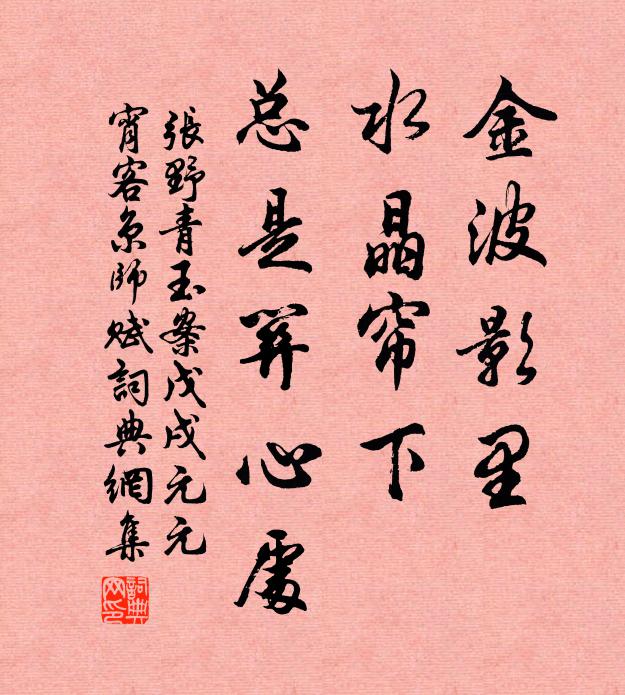 金波影里
水晶帘下
总是关心處
張野青玉案戊戌元元
宵客京師賦詞典網集
詞典网印